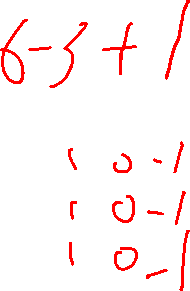 6-3+1
1 0 -1
1 0 -1
1 0 -1